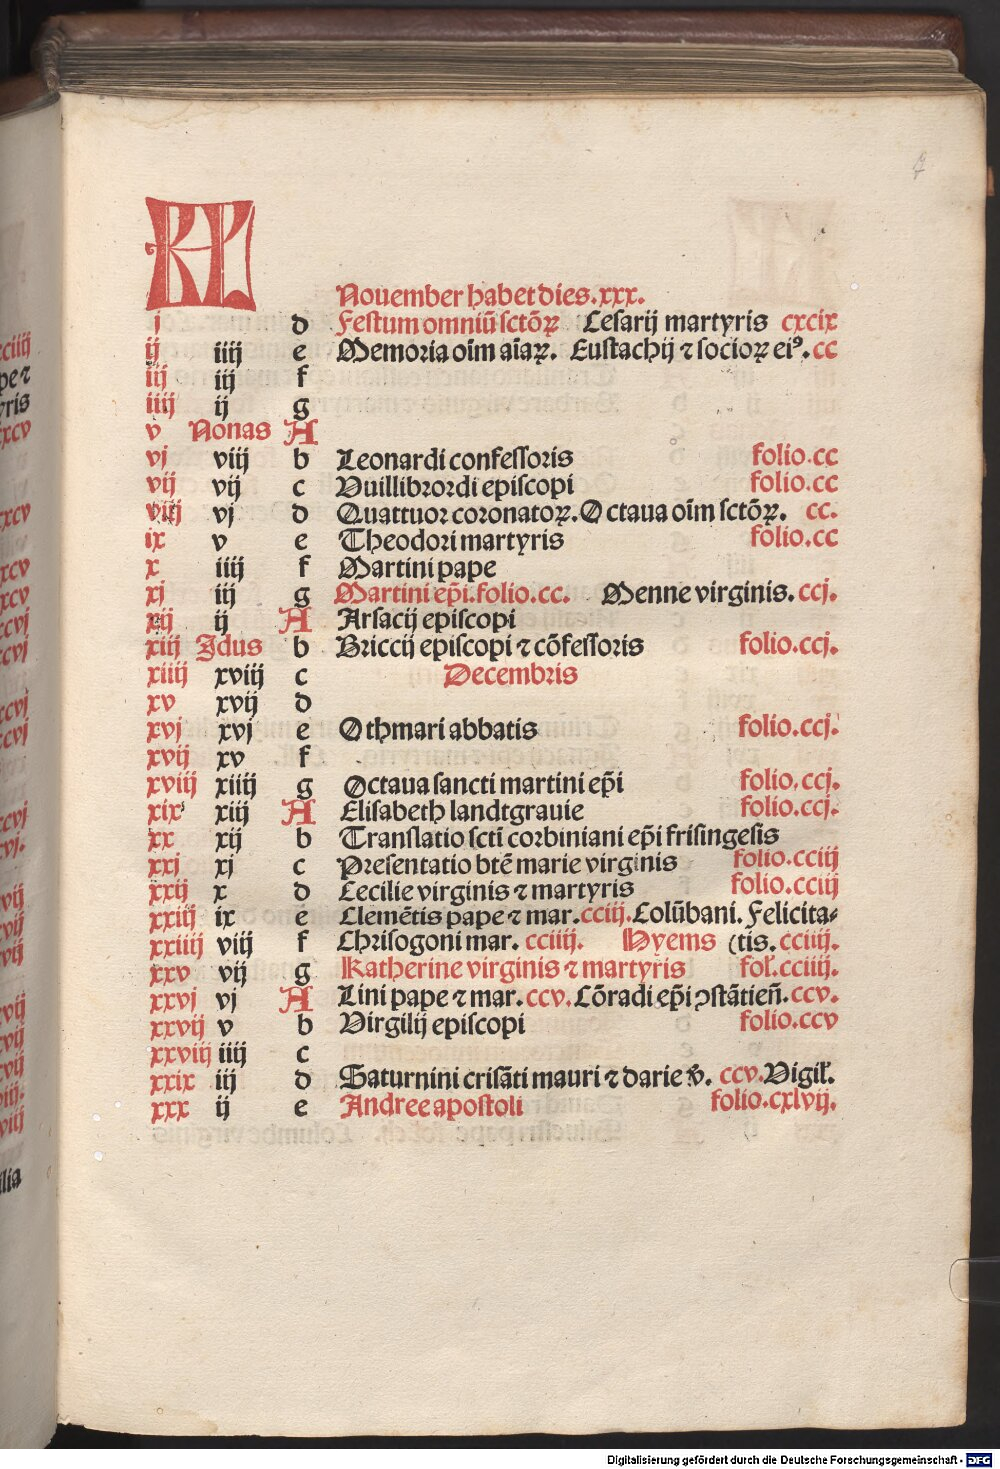 7
KL
Nouember habet dies.xxx.
j d Festum omniū sctōꝝ Cesarij martyris cxcix
ij iiij e Memoria oīm aīaꝝ. Eustachij ⁊ socioꝝ eiꝰ. cc
iij iij f
iiij ij g
v Nonas A
vj viij b Leonardi confessoris folio.cc
vij vij c Vuillibrordi episcopi folio.cc
viij vj d Quattuor coronatoꝝ. Octaua oīm sctōꝝ. cc.
ix v e Theodori martyris folio.cc
x iiij f Martini pape
xj iij g Martini ep̄i.folio.cc. Menne virginis. ccj.
xij ij A Arsacij episcopi
xiij Idus b Briccij episcopi ⁊ cōfessoris folio.ccj.
xiiij xviij c Decembris
xv xvij d
xvj xvj e Othmari abbatis folio.ccj.
xvij xv f
xviij xiiij g Octaua sancti martini ep̄i folio.ccj.
xix xiij A Elisabeth landtgrauie folio.ccj.
xx xij b Translatio sctī corbiniani ep̄i frisingēsis
xxj xj c Presentatio btē marie virginis folio.cciij
xxij x d Cecilie virginis ⁊ martyris folio.cciij
xxiij ix e Clemētis pape ⁊ mar. cciij. Colūbani. Felicita⸗
xxiiij viij f Chrisogoni mar. cciiij. Hyems (tis. cciiij.
xxv vij g Katherine virginis ⁊ martyris fol̄.cciiij.
xxvj vj A Lini pape ⁊ mar. ccv. Cōradi ep̄i ꝯstātień. ccv.
xxvij v b Virgilij episcopi folio.ccv
xxviij iiij c
xxix iij d Saturnini crisāti mauri ⁊ darie v̄. ccv. Vigil̄.
xxx ij e Andree apostoli folio.cxlvij.
Digitalisierung gefördert durch die Deutsche Forschungsgemeinschaft - DFG